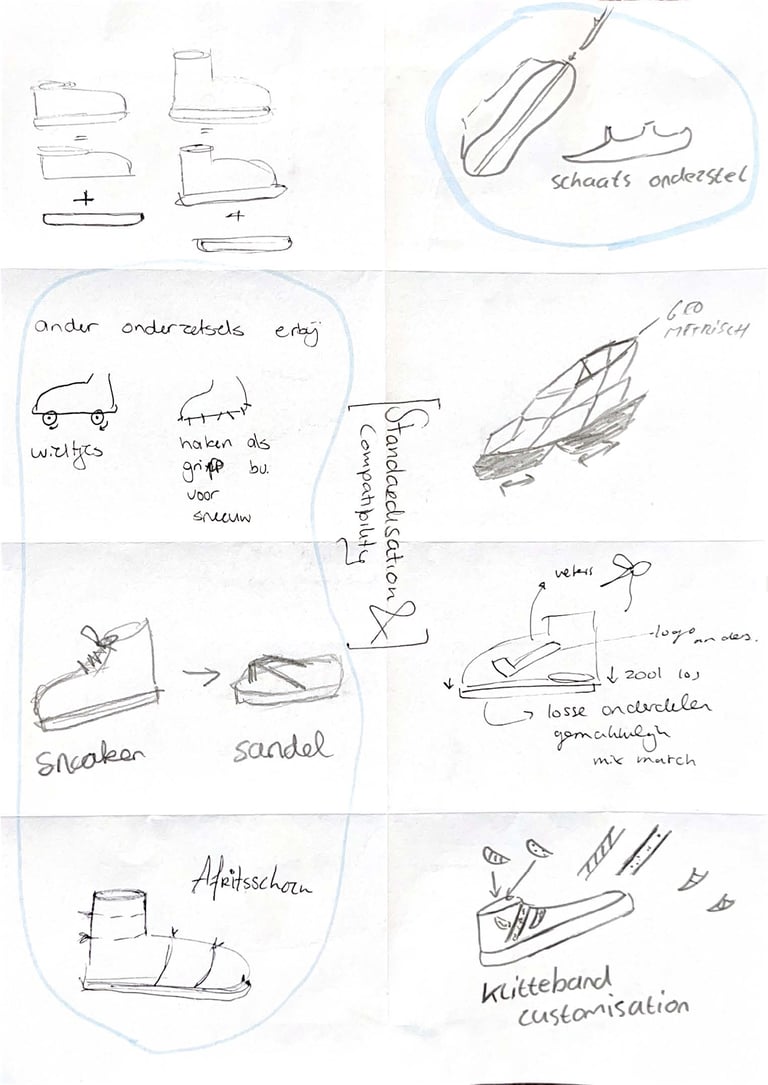 schaats onderstel
ander onderzetsels erbij
wieltjes
haken als
gripp bv.
voor
sneeuw
GEO
METRISCH
[Standaardisation &
compatibility]
sneaker
sandel
veters
logo anders.
zool los
losse onderdelen
gemakkelijk
mix match
Afritsschoen
klitteband
customisation